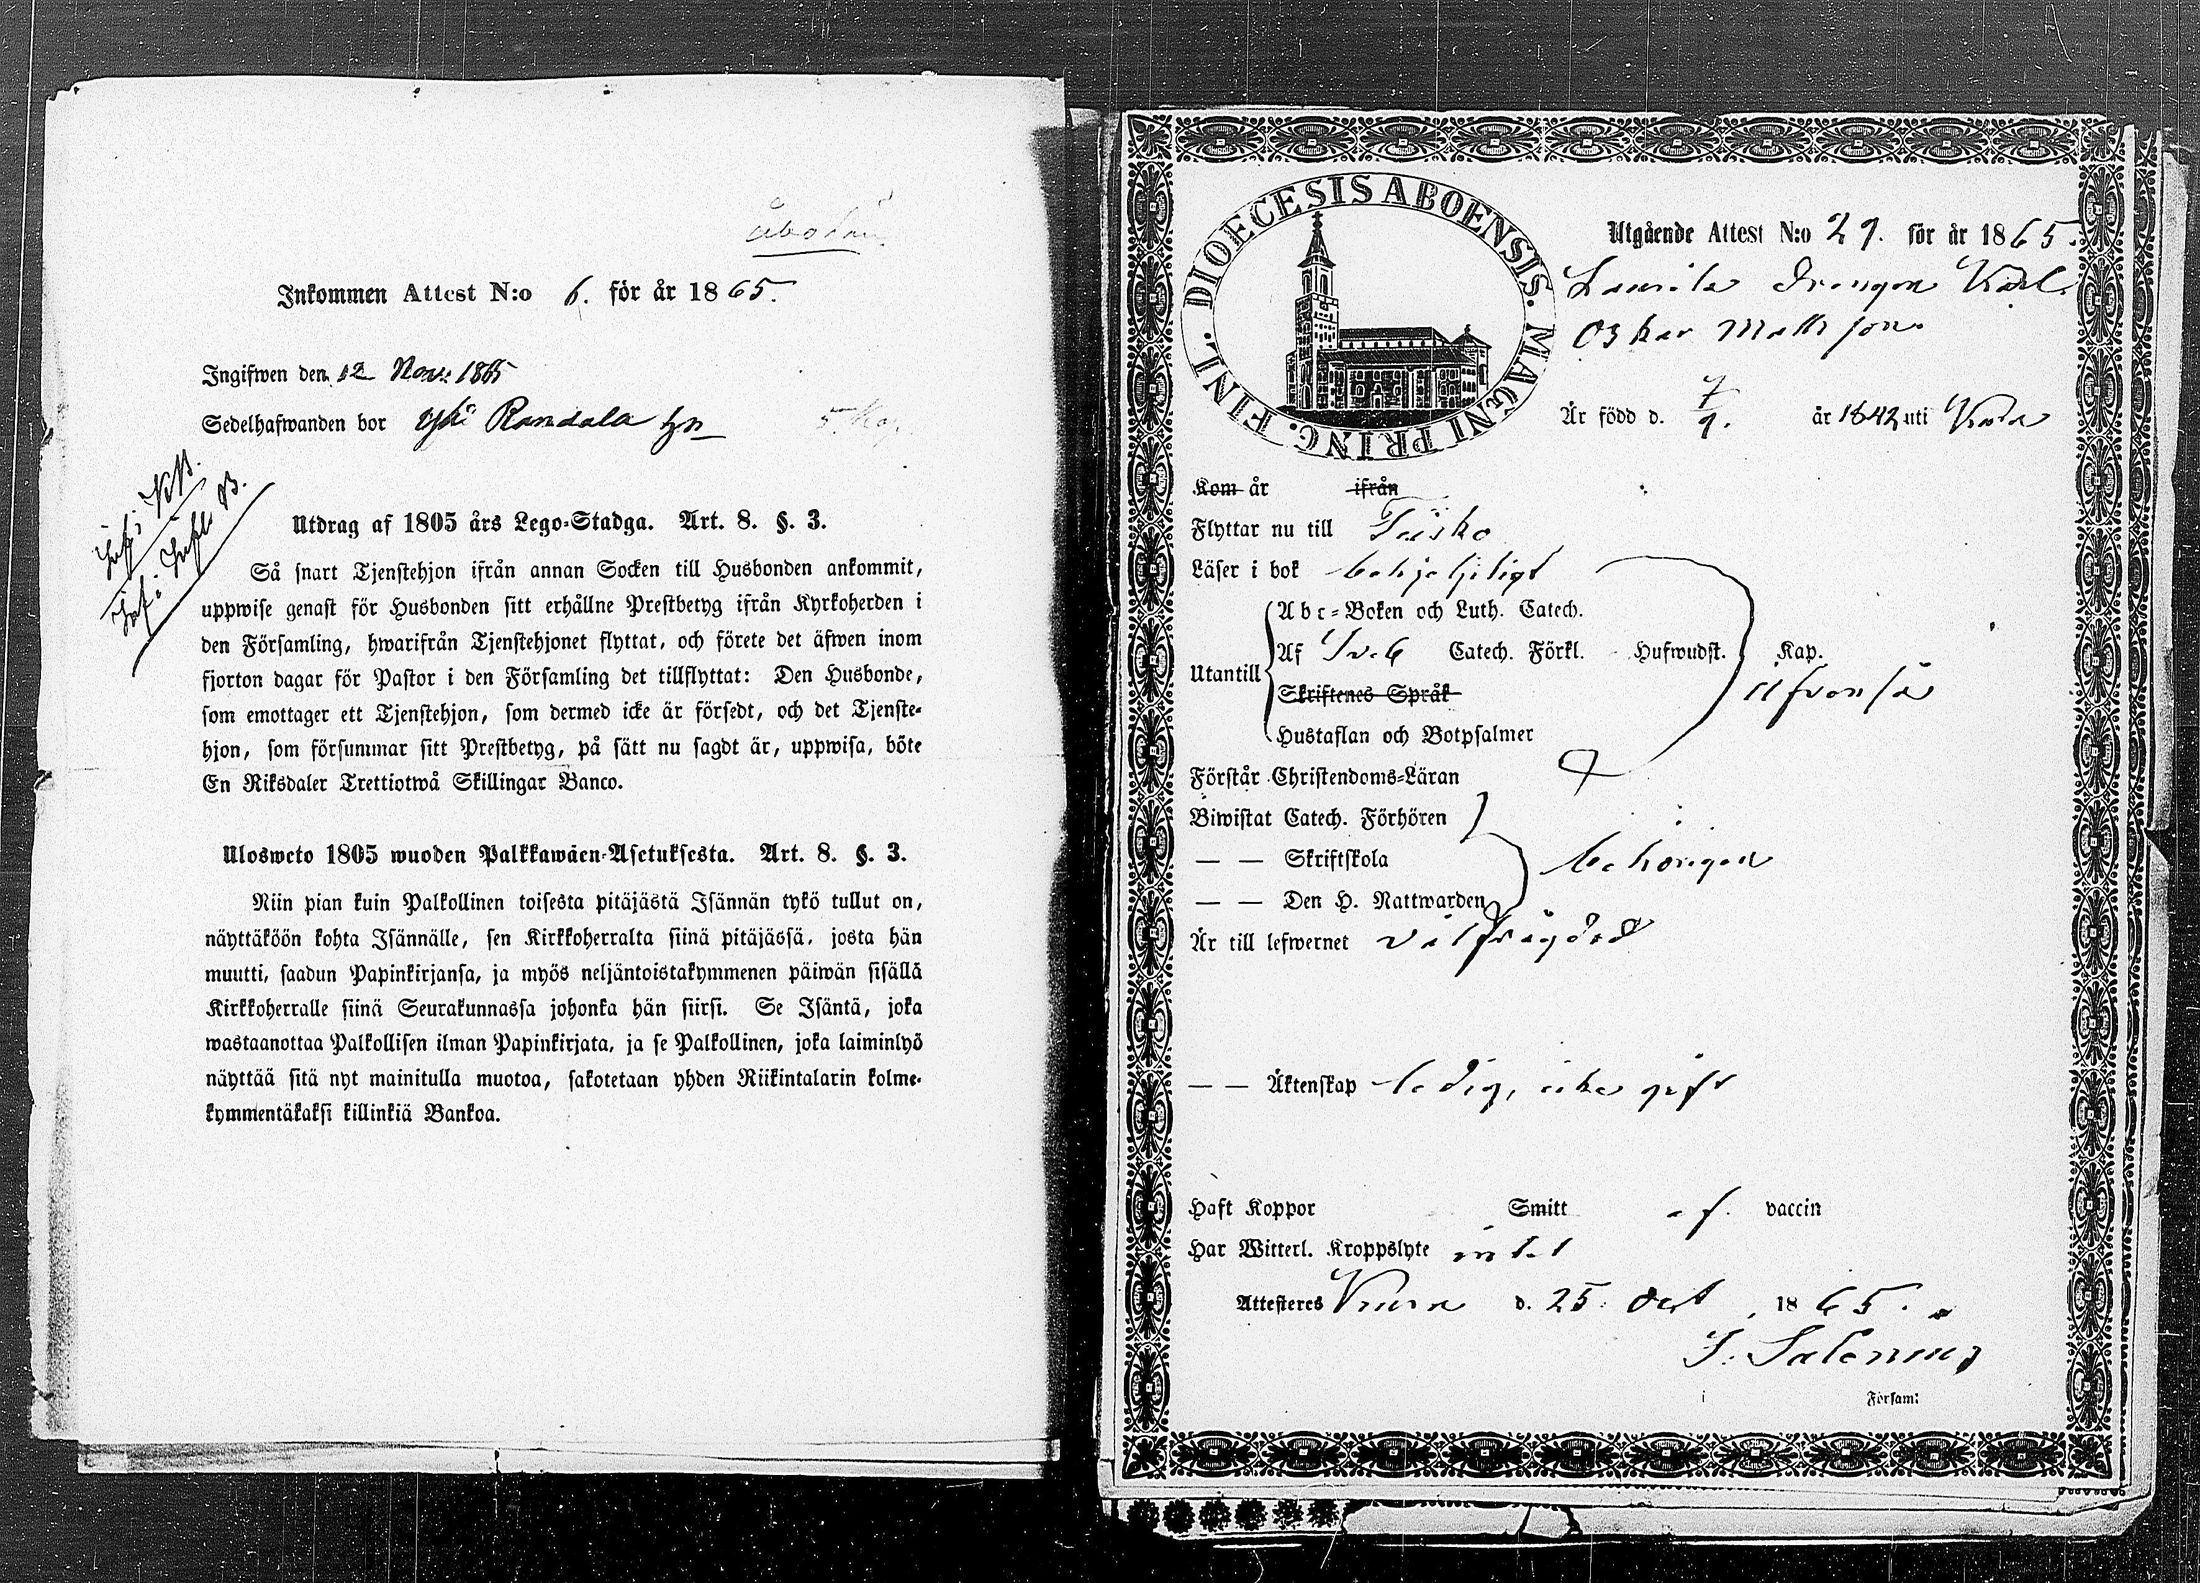 Inkommen Attest N:o 6. för år 1865.
Ingifwen den 12 Nov: 1865
Sedelhafwanden bor Yli Randala hn
Utdrag af 1805 års Lego-Stadga. Art. 8. §. 3.
Så snart Tjenstehjon ifrån annan Socken till Husbonden ankommit,
uppwise genast för Husbonden sitt erhållne Prestbetyg ifrån Kyrkoherden i
den Församling, hwarifrån Tjenstehjonet flyttat, och förete det äfwen inom
fjorton dagar för Pastor i den Församling det tillflyttat: Den Husbonde,
som emottager ett Tjenstehjon, som dermed icke är försedt, och det Tjenste-
hjon, som försummar sitt Prestbetyg, på sätt nu sagdt är, uppwisa, böte
En Riksdaler Trettiotwå Skillingar Banco.
Ulosweto 1805 wuoden Palkkawäen-Asetuksesta. Art. 8. §. 3.
Niin pian kuin Palkollinen toisesta pitäjästä Isännän tykö tullut on,
näyttäköön kohta Isännälle, sen Kirkkoherralta siinä pitäjässä, josta hän
muutti, saadun Papinkirjansa, ja myös neljäntoistakymmenen päiwän sisällä
Kirkkoherralle siinä Seurakunnassa johonka hän siirsi. Se Isäntä, joka
wastaanottaa Palkollisen ilman Papinkirjata, ja se Palkollinen, joka laiminlyö
näyttää sitä nyt mainitulla muotoa, sakotetaan yhden Riikintalarin kolme-
kymmentäkaksi killinkiä Bankoa.
DIOECESIS ABOENSIS. MAGNI PRINC. FINL.
Utgående Attest N:o 29. för år 1865.
Laurila Drengen Karl
Oskar Matts son.
Är född d. 7/9. år 1842 uti
Kom år ifrån
Flyttar nu till
Läser i bok behjelpligt
Abc-Boken och Luth. Catech.
Utantill Af Sveb Catech. Förkl. Hufwudst. Kap.
Skriftenes Språk ifrån så
Hustaflan och Botpsalmer
Förstår Christendoms-Läran
Biwistat Catech. Förhören
— — Skriftskola behörigen
— — Den H. Nattwarden
Är till lefwernet välfrägdad
— — Äktenskap ledig, icke gift
Haft Koppor Smitt af vaccin
Har Witterl. Kroppslyte intet
Attesteres d. 25: Oct 1865.
J: Salenius
i Församl: